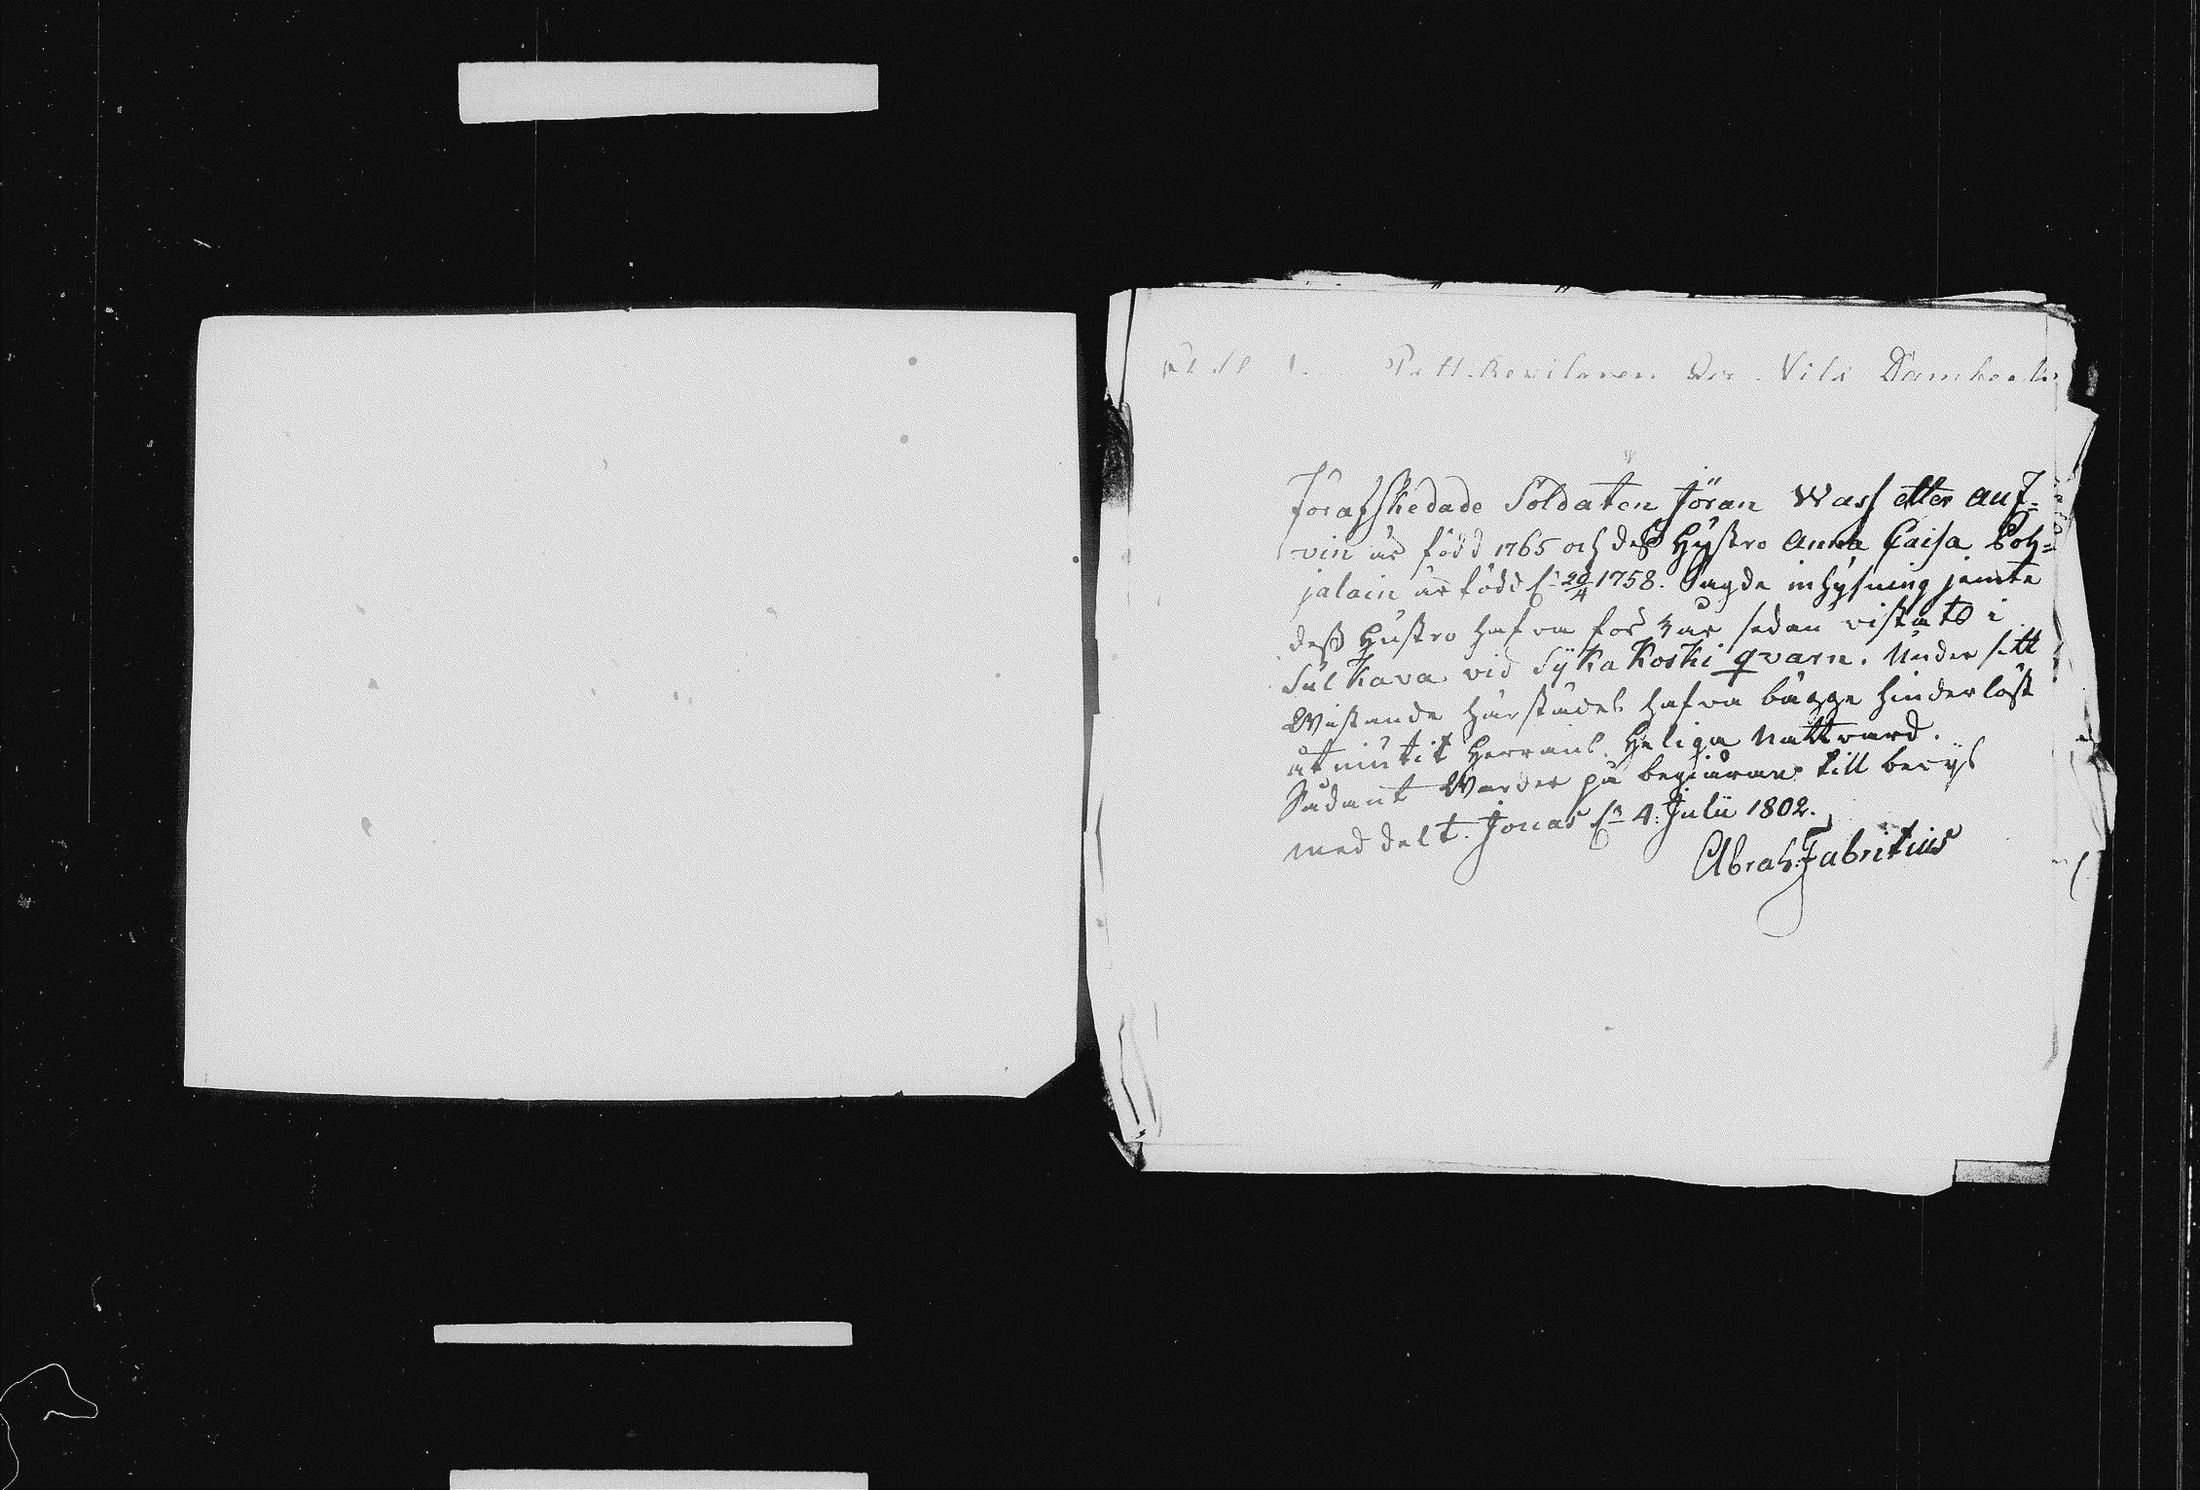 Nils Dambeck
Förafskedade Soldaten Jöran Wass eller Auf-
vin är född 1765 och deß Hustro Anna Caisa Poh-
jalain är född d. 20/4 1758. Sagde inhysning jemte
deß Hustro hafva för 3 år sedan vistats i
Sulkava vid Sykäkoski qvarn. Under sitt
Wistande härstädes hafva bägge hinderlöst
åtniutit Herrans Heliga Nattvard.
Sådant Warder på begiäran till bevys
meddelt. Jonas d. 4. Julii 1802.
Abrah: Fabritius